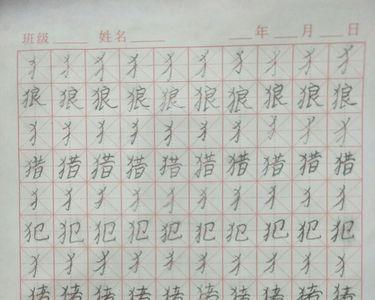 班级 姓名 年 月 日
犭犭犭犭犭犭犭犭犭犭
狼狼狼狼狼狼狼狼狼狼
犭犭犭犭犭犭犭犭犭犭
猎猎猎猎猎猎猎猎猎猎
犭犭犭犭犭犭犭犭犭犭
犯犯犯犯犯犯犯犯犯犯
犭犭犭犭犭犭犭犭犭犭
猪猪猪猪猪猪猪猪猪猪